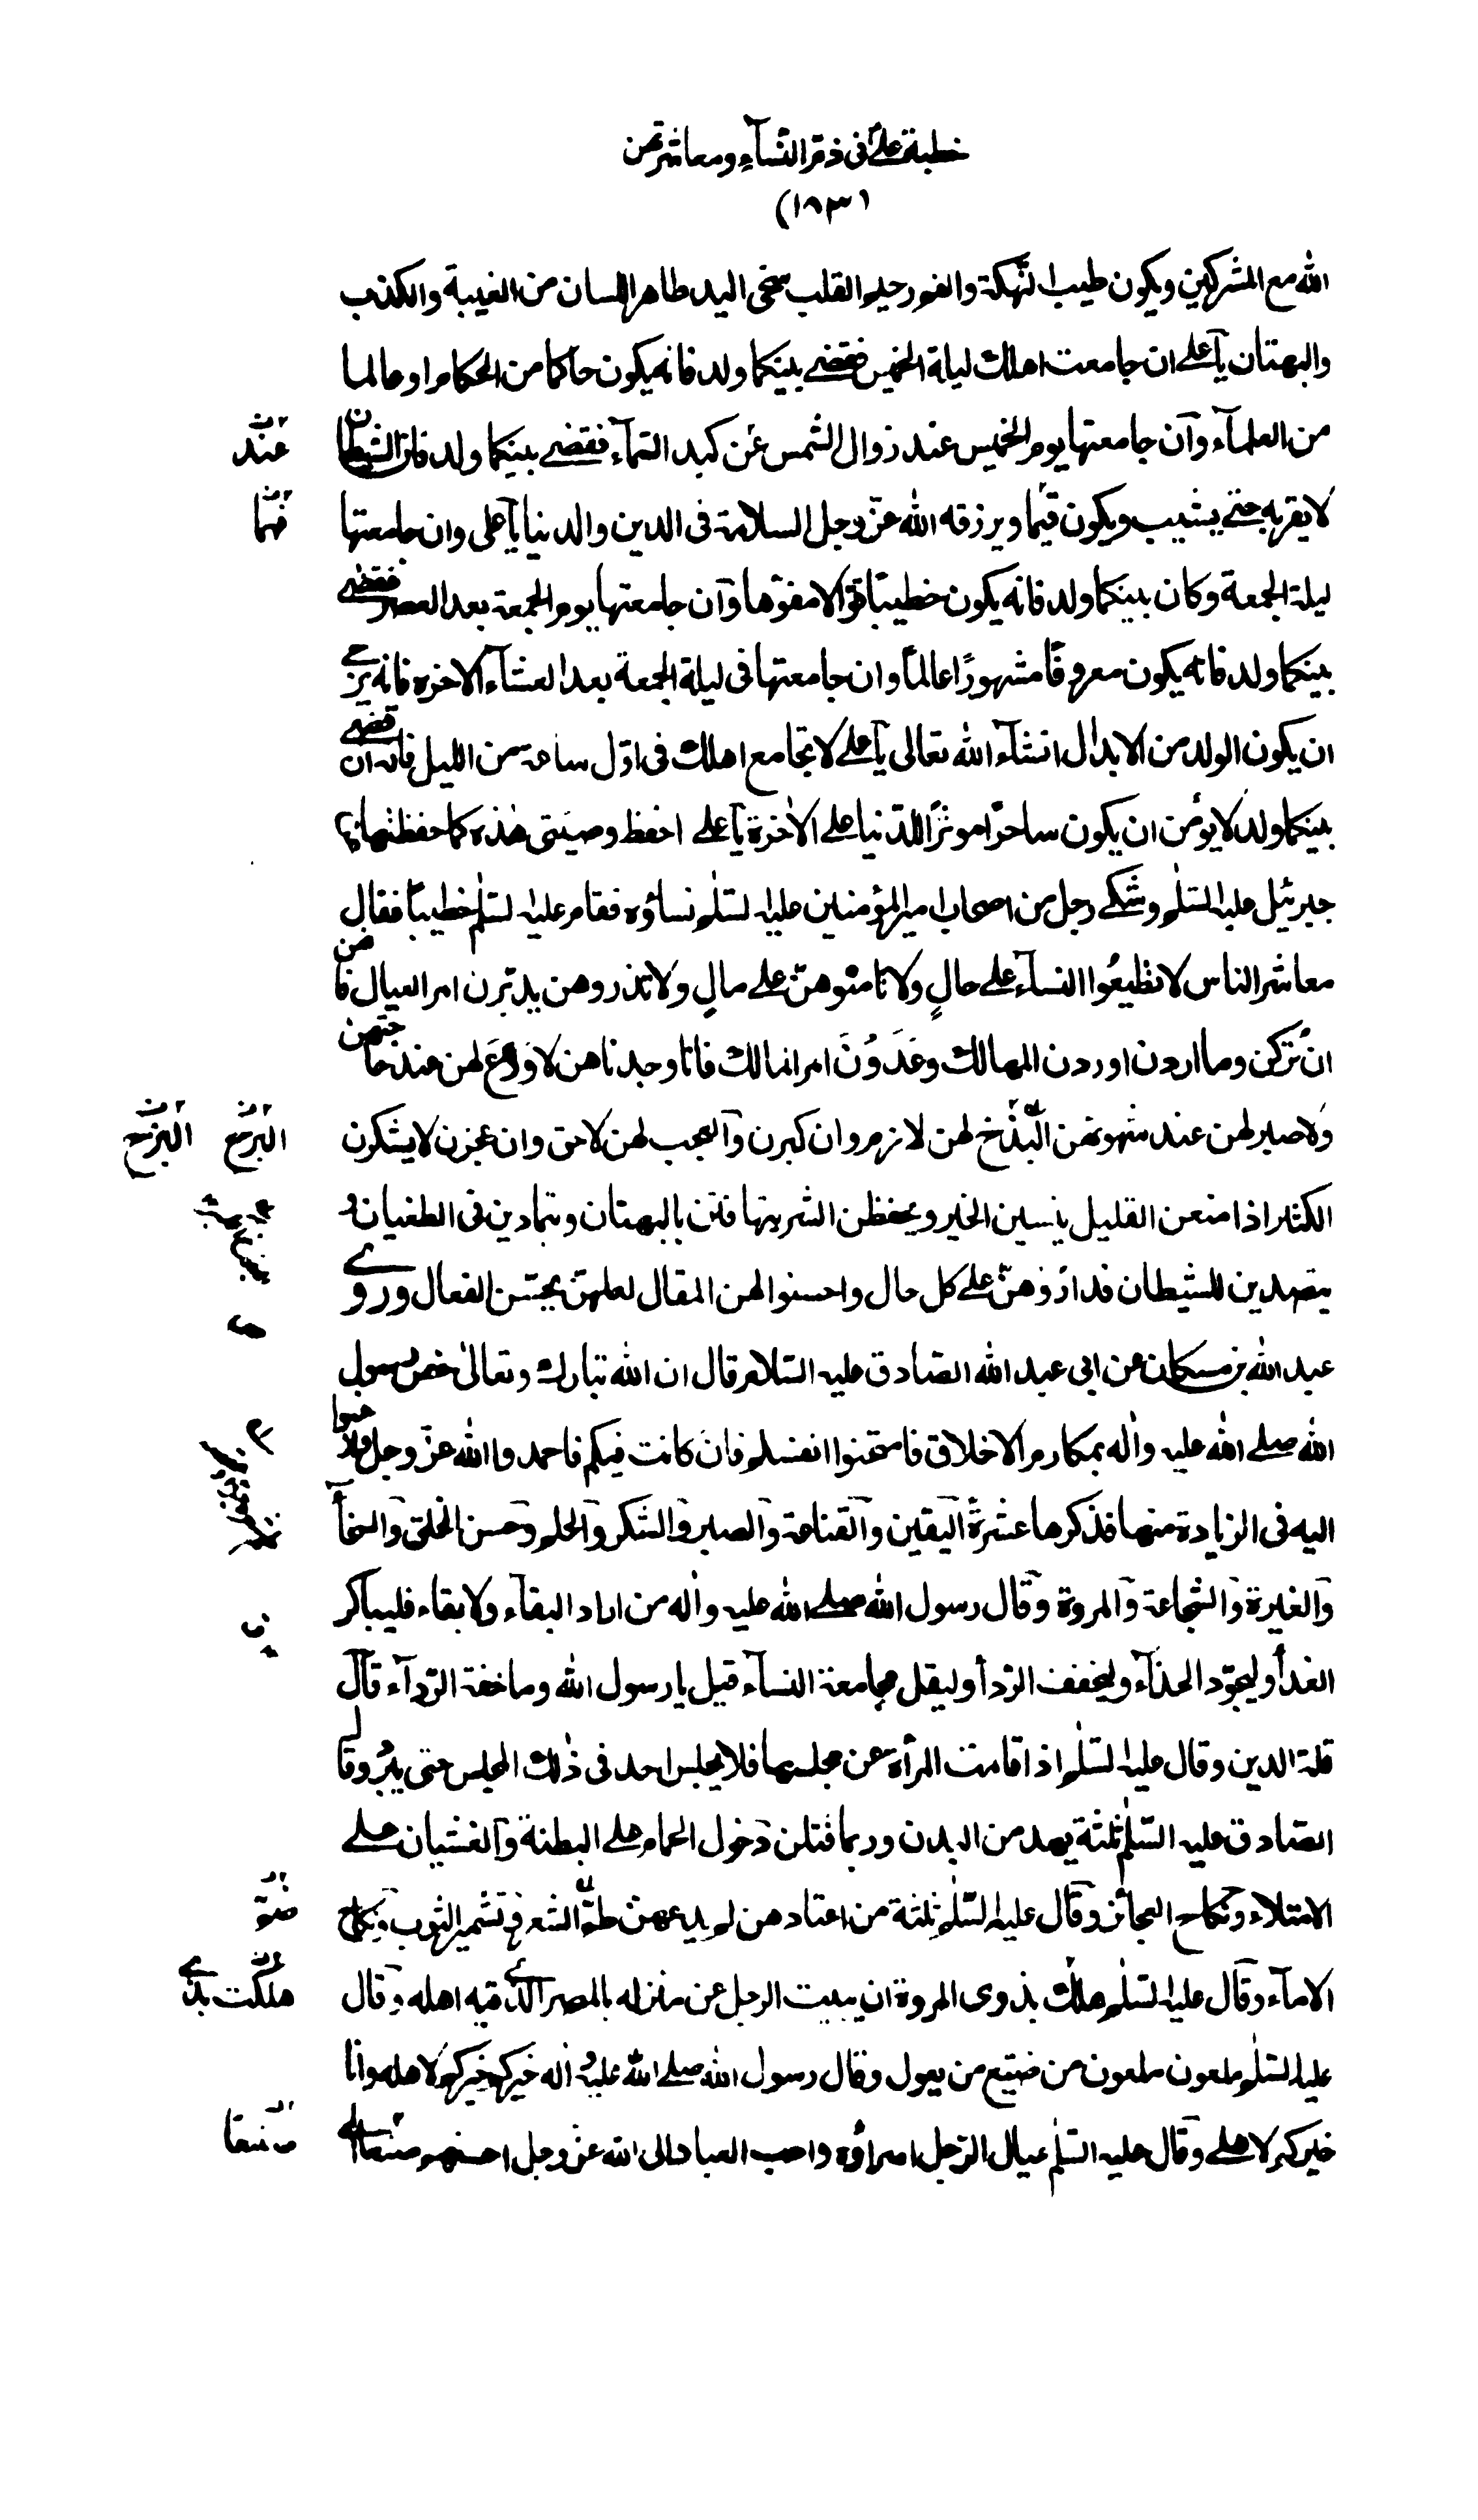 خطبة علىّ فى ذمّ النّسآءِ ومعاشرتهن
(١٨٣)
الله مع المشركين ويكون طيب النّهكة والفم رحيم القلب سخى اليد طاهر اللسان من الغيبة والكذب
والبهتان يآ على ان جامعت اهلك ليلة الخميس فقضى بينكما ولد فانه يكون حاكما من الحكام او عالما
من العلمآء وآن جامعتها يوم الخميس عند زوال الشمس عن كبد السّمآء فقضى بينكما ولد فان الشيطان
عند
لا يقربه حتى يشيب ويكون قيّما ويرزقه الله عزّ وجل السلامة فى الدين والدنيا يآ على وان جامعتها
فهما
ليلة الجمعة وكان بينكما ولد فانه يكون خطيبًا قوّالا مفوّها وآن جامعتها يوم الجمعة بعد العصر فقضى
بينكما ولد فانه يكون معروفًا مشهورًا عالمًا وان جامعتها فى ليلة الجمعة بعد العشآء الاخرة فانه يرجى
ان يكون الولد من الابدال انشآء الله تعالى يآ على لا تجامع اهلك فى اوّل ساعة من الليل فانه ان قضى
بينكما ولد لا يؤمن ان يكون ساحرًا موثرًا للدّنيا على الاٰخرة يآ على احفظ وصيّتى هٰذه كما حفظتها عن
جبرئيل عليه السّلٰم وشكى رجل من اصحاب امير المؤمنين عليه السّلٰم نساؤه فقام عليه السّلٰم خطيبًا فقال
معاشر الناس لا تطيعُوا النسآء على حالٍ ولا تامنوهنّ على مالٍ ولا تذروهن يدبّرن امر العيال فانهن
ان تُركن وما اردن اوردن المهالك وعَدَوْنَ امر المالك فانا وجدناهن لا وَرَعَ لهن عند حاجتهن
ولا صبر لهن عند شهوتهن البّذخ لهن لازم وان كبرن وآلعجب لهن لاحق وان عجزن لا يشكرن
البزخ البزخ
الكثير اذا منعن القليل ينسين الخير ويحفظن الشر يتهافتن بالبهتان ويتمادين فى الطغيان و
يتصدين للشيطان فداروهنّ على كل حال واحسنوا لهن المقال لعلهنّ يحسّن الفعال وروى
عبد الله بن مسكان عن ابى عبد الله الصّادق عليه السّلام قال ان الله تبارك وتعالىٰ خص رسول
الله صلى الله عليه واٰله بمكارم الاخلاق فامتحنوا انفسكم فان كانت فيكم فاحمدوا الله عزّ وجل وارغبوا
اليه فى الزيادة منها فذكرها عشرة آليقين وآلقناعة وآلصبر وآلشكر وآلحلم وحسن الخلق وآلسخآء
وآلغيرة وآلشجاعة وآلمروة وقال رسول الله صلى الله عليه واٰله من اراد البقآء ولا بقاء فليباكر
الغدآ وليجوّد الحذآء وليخفف الرّدآ وليقل مجامعة النسآء قيل يا رسول الله وما خفة الرّدآء قآل
قلة الدين وقال عليه السّلٰم اذا قامت المرأة عن مجلسها فلا يجلس احد فى ذٰلك المجلس حتى يبرُد وقال
الصّادق عليه السّلٰم ثلثة يهدمن البدن وربما قتلن دَخول الحمام على البطنة وآلغشيان على
الامتلاء ونكاح العجائز وقآل عليه السّلٰم ثلثة من اعتادهن لم يدعهن طمّ الشعر وتشمير الثوب ونكاح
الامآء وقآل عليه السّلٰم هلك بذوى المروة ان يبيت الرجل عن منزله بالمصر الّذى فيه اهله وقال
هلكت بذى
عليه السّلٰم ملعون ملعون من ضيّع من يعول وقال رسول الله صلى الله عليه واٰله خيركم خيركم لاهله وانا
خيركم لاهلى وقال عليه السّلٰم عيال الرّجل اسراؤه واحب العباد الى الله عزّ وجل احسنهم صنعا الى
صنيعا